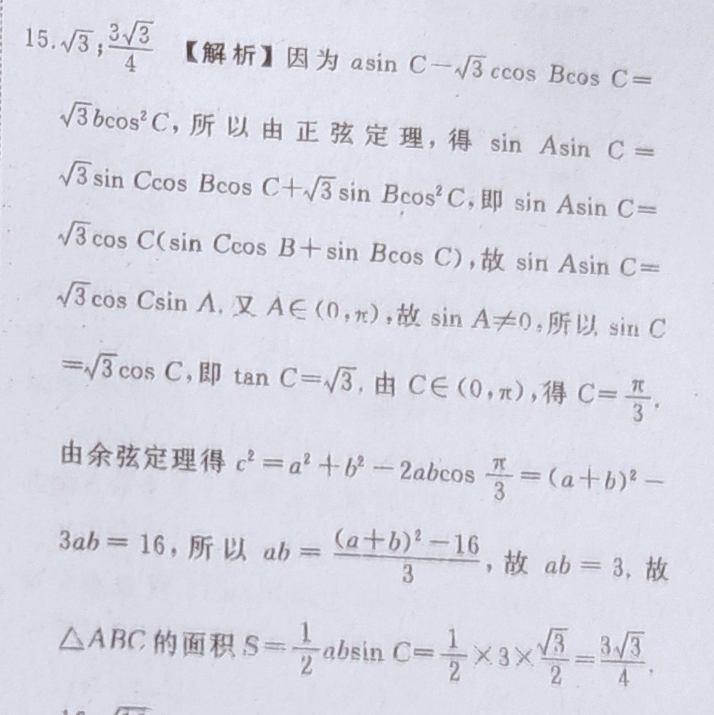 15.√3;3√3/4 【解析】因为 asin C−√3ccos Bcos C=
√3bcos²C,所以由正弦定理,得 sin Asin C=
√3sin Ccos Bcos C+√3sin Bcos²C,即 sin Asin C=
√3cos C(sin Ccos B+sin Bcos C),故 sin Asin C=
√3cos Csin A. 又 A∈(0,π),故 sin A≠0,所以 sin C
=√3cos C,即 tan C=√3. 由 C∈(0,π),得 C=π/3.
由余弦定理得 c²=a²+b²−2abcos π/3=(a+b)²−
3ab=16,所以 ab=(a+b)²−16/3,故 ab=3,故
△ABC 的面积 S=1/2absin C=1/2×3×√3/2=3√3/4.